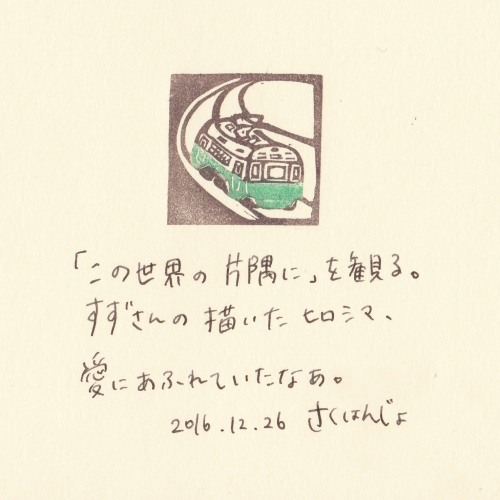 「この世界の片隅に」を観る。
すずさんの描いたヒロシマ、
愛にあふれていたなあ。
2016.12.26 さくはんじょ